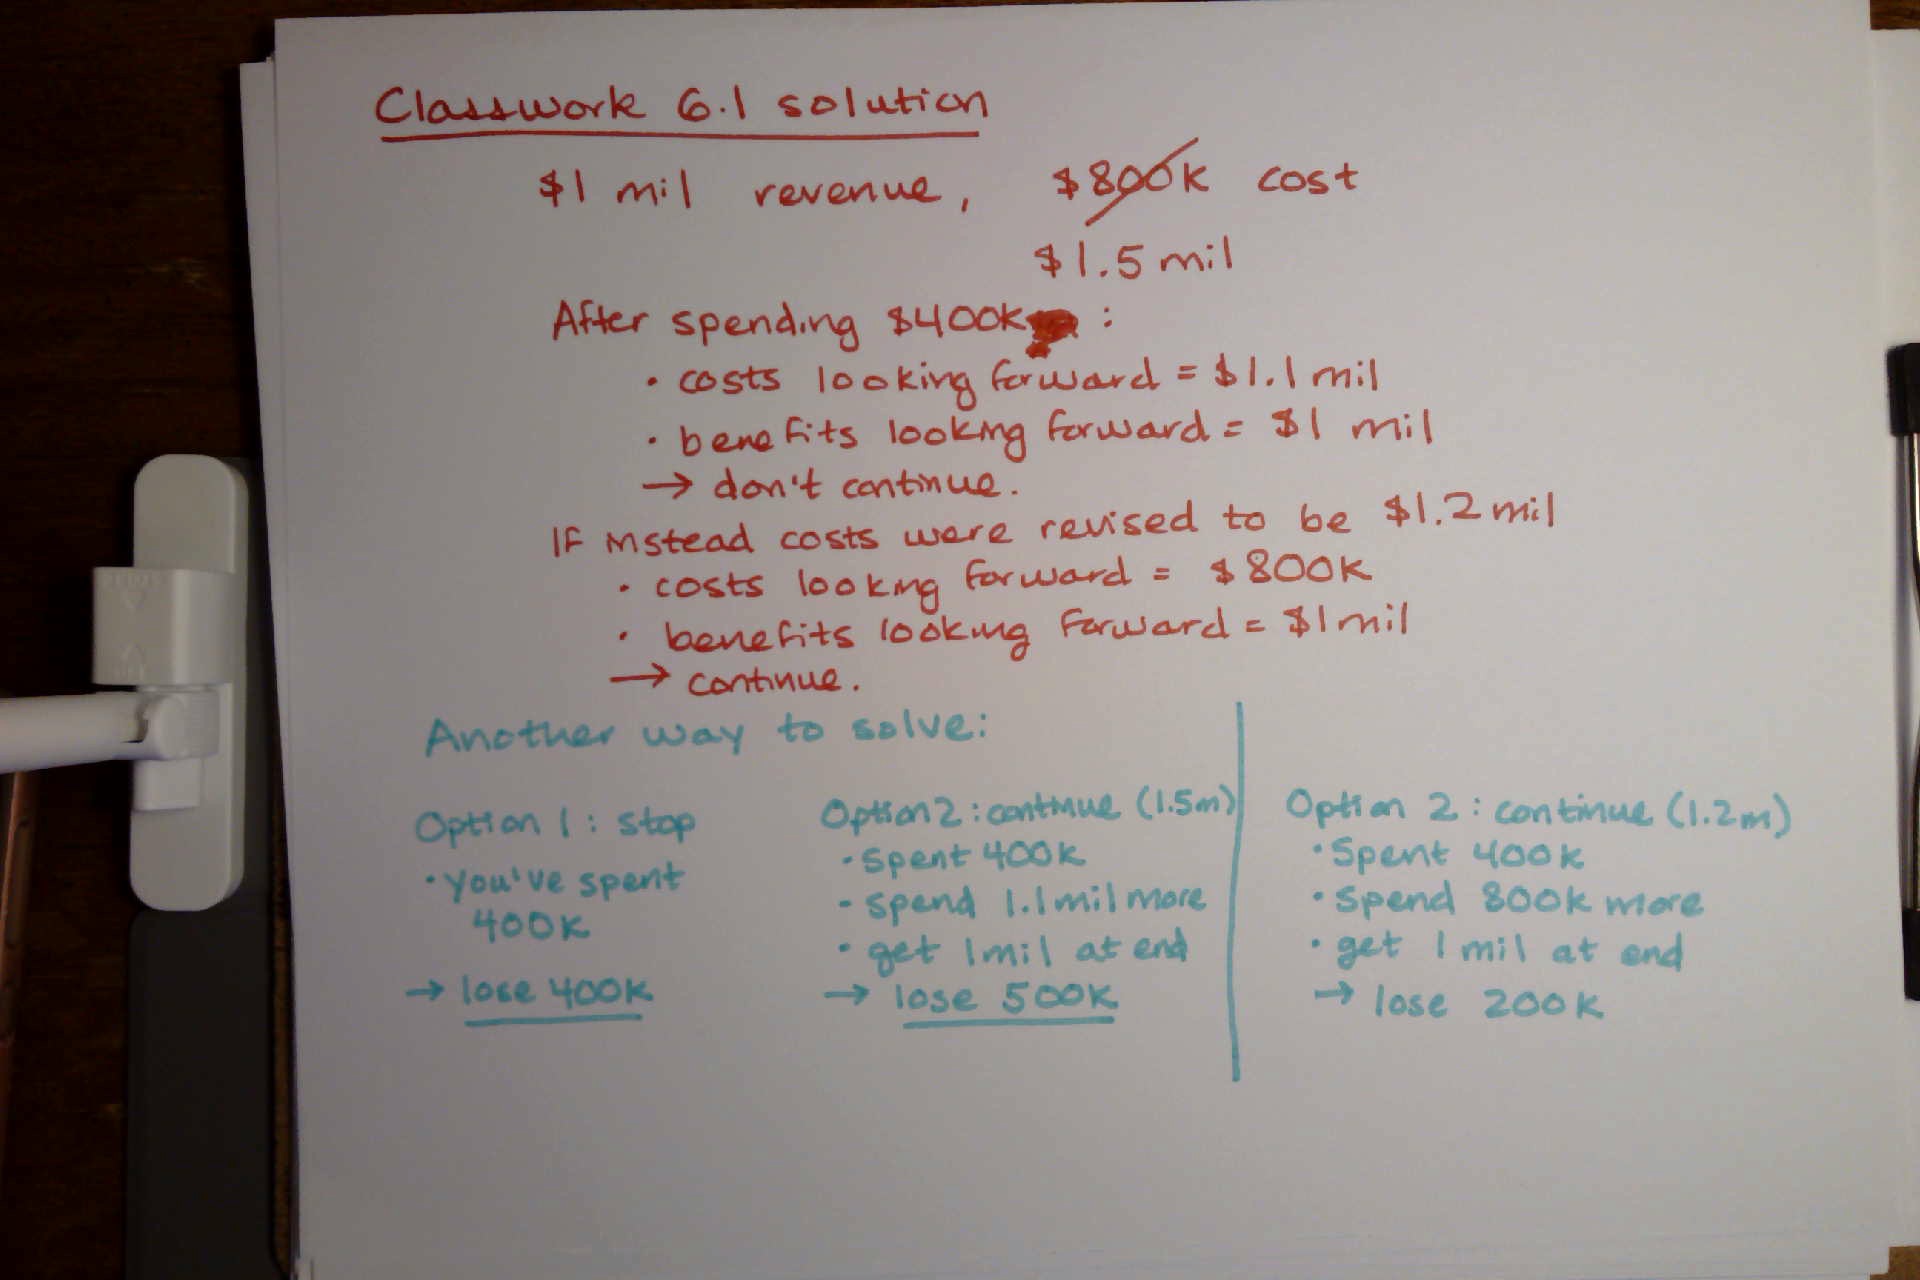 Classwork 6.1 solution
$1 mil revenue, $800K cost
$1.5 mil
After spending $400K :
· costs looking forward = $1.1 mil
· benefits looking forward = $1 mil
→ don't continue.
If instead costs were revised to be $1.2 mil
· costs looking forward = $800K
· benefits looking forward = $1 mil
→ continue.
Another way to solve:
Option 1: stop
· you've spent
400K
→ lose 400K
Option 2: continue (1.5m)
· Spent 400K
- spend 1.1 mil more
· get 1 mil at end
→ lose 500K
Option 2: continue (1.2m)
· Spent 400K
· Spend 800K more
· get 1 mil at end
→ lose 200K